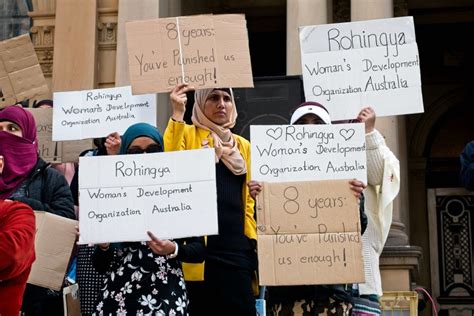 8 years:
You've Punished us
enough!
Rohingya
Woman's Development
Organization Australia
Rohingya
Woman's Development
Organization Australia
Rohingya
Woman's Development
Organization Australia
Rohingya
Woman's Development
Organization Australia
8 years:
You've Punished
us enough!